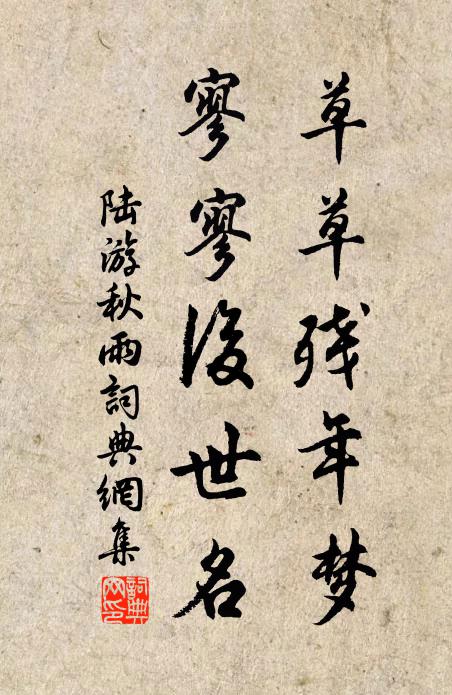 草草残年梦
寥寥後世名
陆游秋雨詞典網集
詞典网印